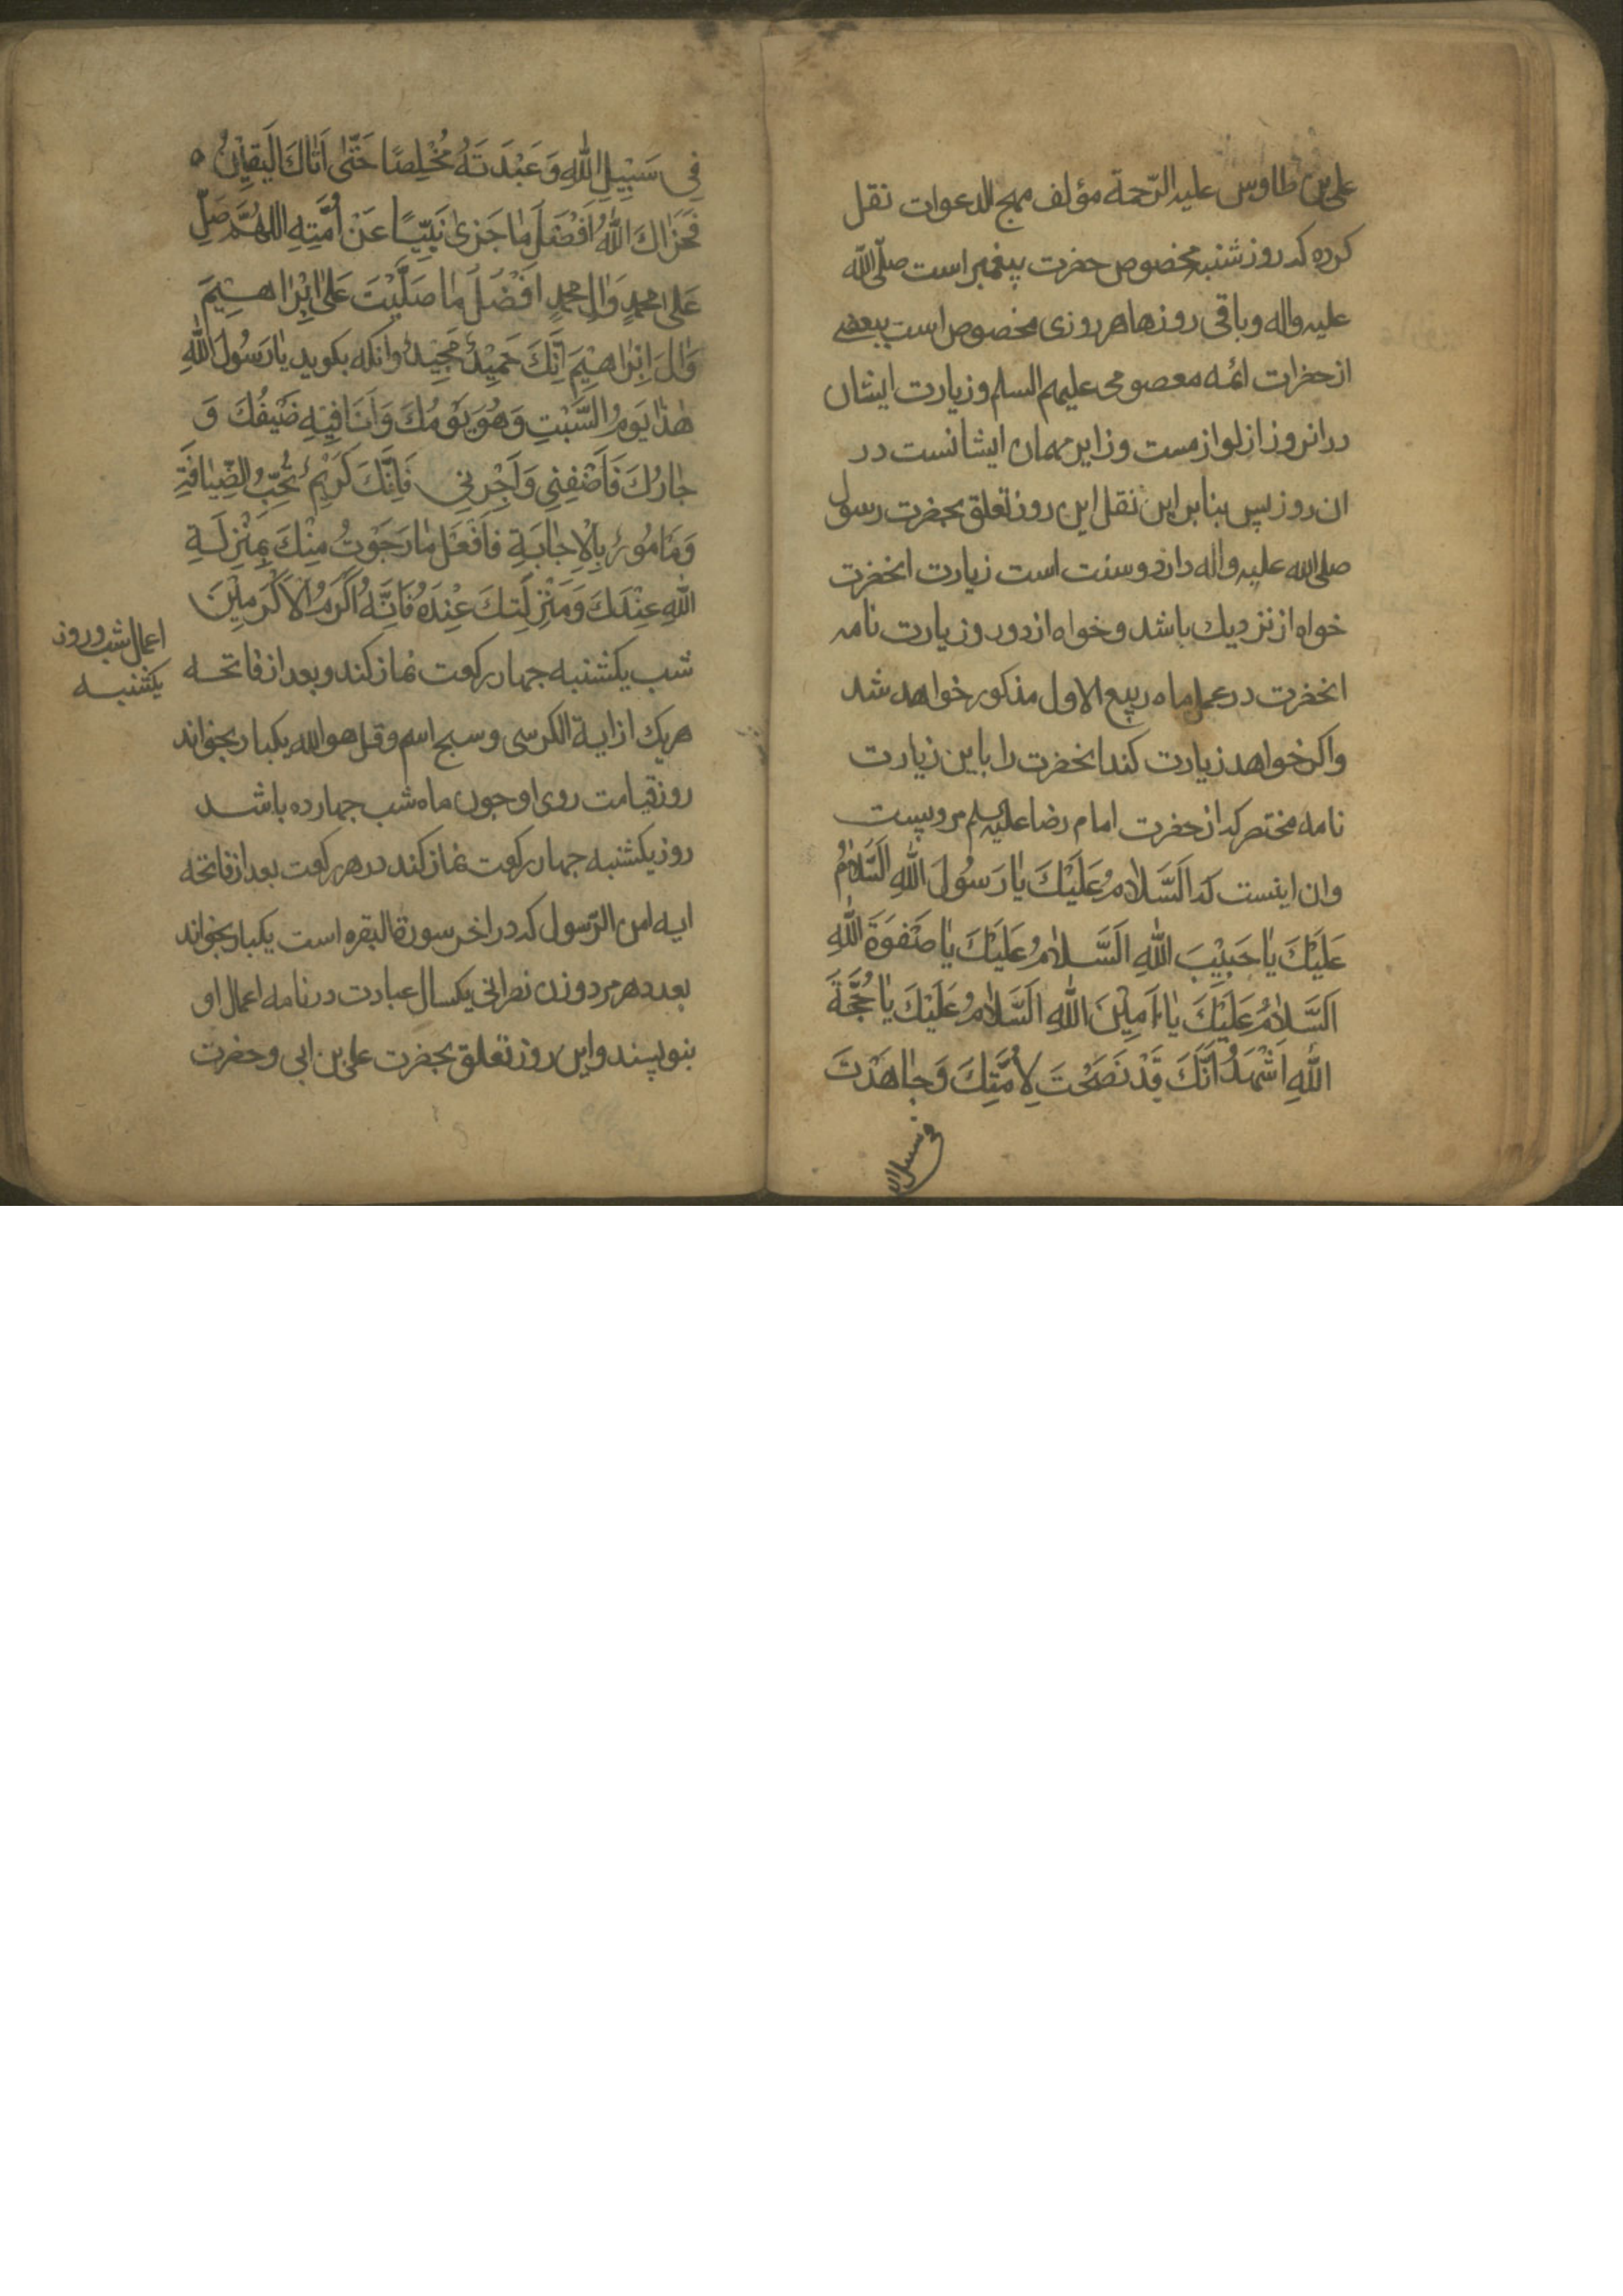 علی بن طاوس علیه الرّحمة مؤلف مهج الدعوات نقل
کرده که روز شنبه مخصوص حضرت پیغمبر است صلّی الله
علیه واله وباقی روزها هر روزی مخصوص است ببعضے
از حضرات ائمه معصومی علیهم السلم وزیارت ایشان
در انروز از لوازمست وزایر مهمان ایشانست در
ان روز پس بنابر این نقل این روز تعلق بحضرت رسول
صلی الله علیه واله دارد وسنت است زیارت انحضرت
خواه از نزدیك باشد وخواه از دور وزیارت نامه
انحضرت در عمل ماه ربیع الاول مذکور خواهد شد
واکر خواهد زیارت کند انحضرت را باین زیارت
نامه مختصر که از حضرت امام رضا علیه السلم مرویست
وان اینست که اَلسَّلامُ عَلَیْكَ یا رَسُولَ اللهِ اَلسَّلامُ
عَلَیْكَ یا حَبِیْبَ اللهِ اَلسَّلامُ عَلَیْكَ یا صَفْوَةَ اللهِ
اَلسَّلامُ عَلَیْكَ یا اَمِیْنَ اللهِ اَلسَّلامُ عَلَیْكَ یا حُجَّةَ
اللهِ اَشْهَدُ اَنَّكَ قَدْ نَصَحْتَ لِاُمَّتِكَ وَجاهَدْتَ
فی سبیل الله
فِی سَبِیْلِ اللهِ وَعَبَدْتَهُ مُخْلِصًا حَتّٰی اَتاكَ الْیَقِیْنُ
فَجَزاكَ اللهُ اَفْضَلَ ما جَزٰی نَبِیًّا عَنْ اُمَّتِهِ اللهُمَّ صَلِّ
عَلٰی محمدٍ وَالِ محمدٍ اَفْضَلَ ما صَلَّیْتَ عَلٰی اِبْراهِیْمَ
وَالِ اِبْراهِیْمَ اِنَّكَ حَمِیْدٌ مَجِیْدٌ وانکه بکوید یا رَسُولَ اللهِ
هٰذا یَوْمُ السَّبْتِ وَهُوَ یَوْمُكَ وَاَنَا فِیْهِ ضَیْفُكَ وَ
جارُكَ فَاَضِفْنِی وَاَجِرْنِی فَاِنَّكَ کَرِیْمٌ تُحِبُّ الضِّیافَةِ
وَمَامُورٌ بِالْاِجابَةِ فَافْعَلْ ما رَجَوْتُ مِنْكَ بِمَنْزِلَةِ
اللهِ عِنْدَكَ وَمَنْزِلَتِكَ عِنْدَهُ فَاِنَّهُ اَکْرَمُ الْاَکْرَمِیْنَ
اعمال شب وروز
یکشنبه
شب یکشنبه جهار رکعت نماز کند وبعد از فاتحه
هریك از ایة الکرسی وسبح اسم وقل هو الله یکبار بخواند
روز قیامت روی او جون ماه شب جهارده باشد
روز یکشنبه جهار رکعت نماز کند در هر رکعت بعد از فاتحه
ایه امن الرّسول که در اخر سورة البقره است یکبار بخواند
بعدد هر مرد وزن نصرانی یکسال عبادت در نامه اعمال او
بنویسند واین روز تعلق بحضرت علی بن ابی وحضرت